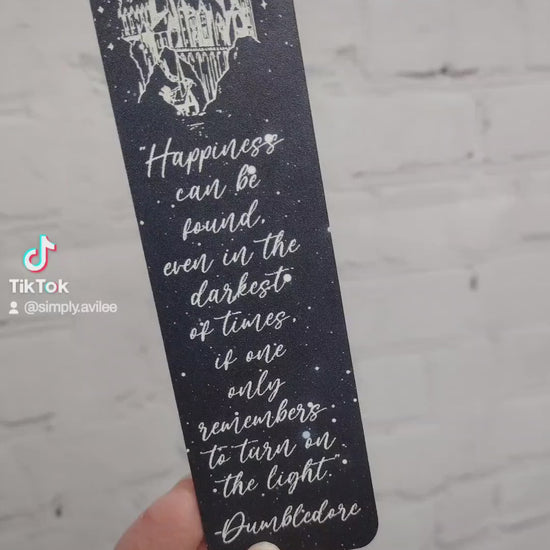 "Happiness
can be
found,
even in the
darkest
of times,
if one
only
remembers
to turn on
the light."
-Dumbledore
TikTok
@simply.avilee